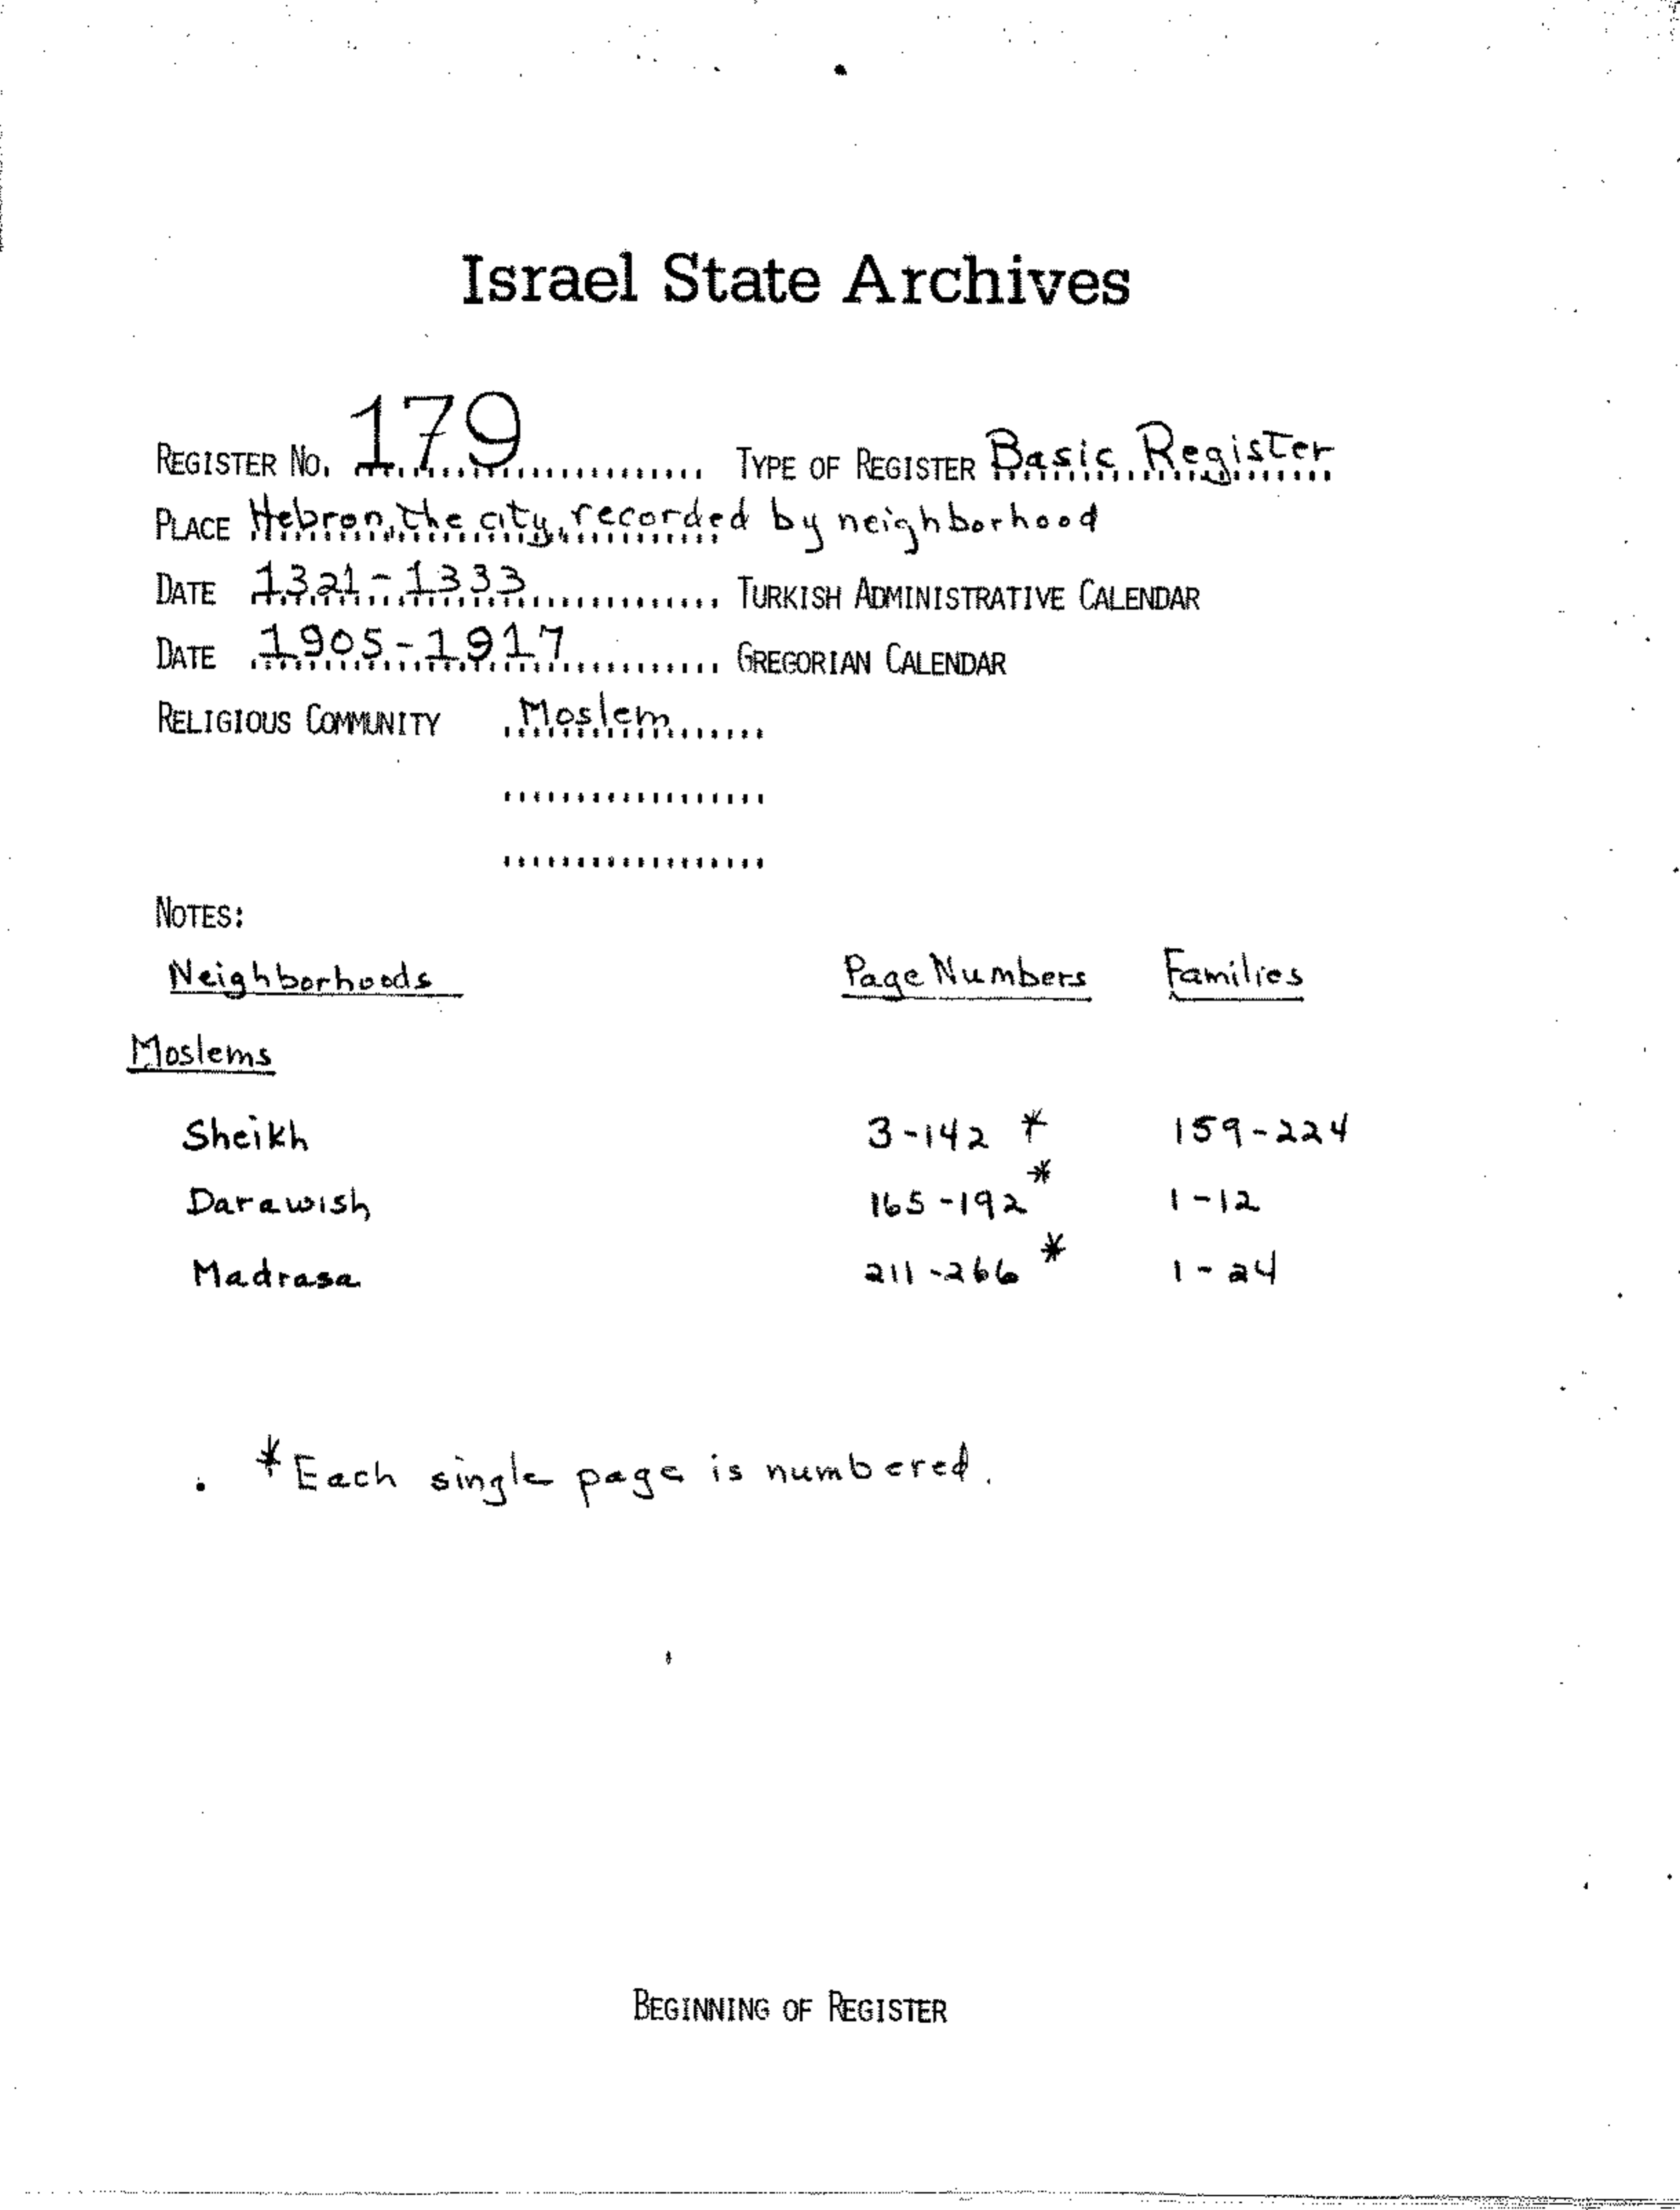 Israel State Archives
REGISTER NO. 179 TYPE OF REGISTER Basic Register
PLACE Hebron, the city, recorded by neighborhood
DATE 1321-1333 TURKISH ADMINISTRATIVE CALENDAR
DATE 1905-1917 GREGORIAN CALENDAR
RELIGIOUS COMMUNITY Moslem
NOTES:
Neighborhoods Page Numbers Families
Moslems
Sheikh 3-142 * 159-224
Darawish 165-192 * 1-12
Madrasa 211-266 * 1-24
* Each single page is numbered.
BEGINNING OF REGISTER